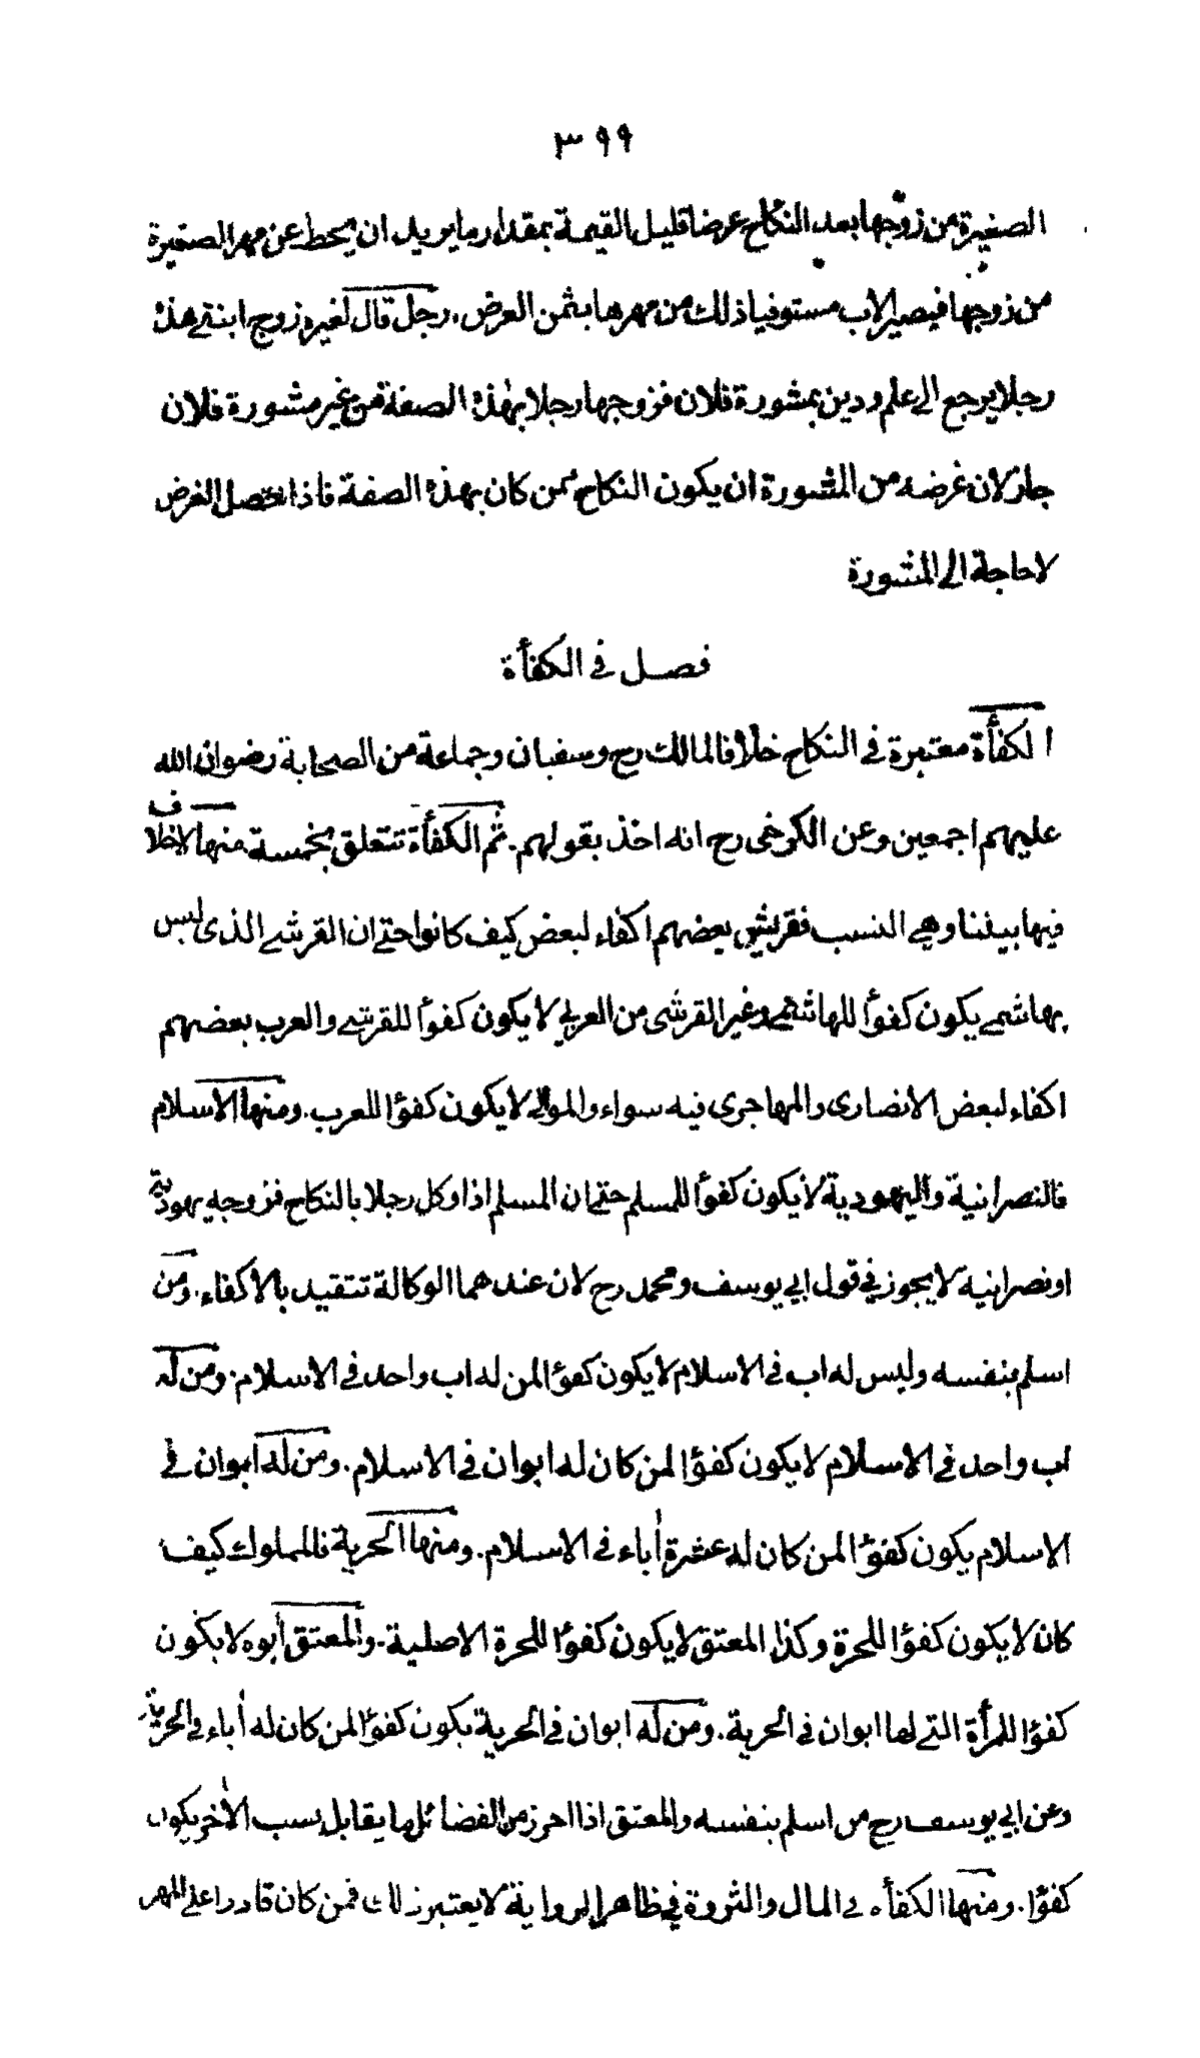 ٣٩٩
الصغيرة من زوجها بعد النكاح عرضا قليل القيمة بمقدار ما يريد ان يحط عن مهر الصغيرة
من زوجها فيصير الاب مستوفيا ذلك من مهرها بثمن العرض. رجل قال لغيره زوج ابنتي هذه
رجلا يرجع الى علم ودين بمشورة فلان فزوجها رجلا بهذه الصفة من غير مشورة فلان
جاز لان غرضه من المشورة ان يكون النكاح ممن كان بهذه الصفة فاذا تحصل الغرض
لا حاجة الى المشورة
فصل في الكفأة
الكفأة معتبرة في النكاح خلافا لمالك رح وسفيان وجماعة من الصحابة رضوان الله
عليهم اجمعين وعن الكرخى رح انه اخذ بقولهم. ثم الكفأة تتعلق بخمسة منها لاخلاف
فيها بيننا وهي النسب فقريش بعضهم اكفاء لبعض كيف كانوا حتى ان القرشي الذى ليس
بهاشمي يكون كفوًا للهاشمي وغير القرشى من العربي لا يكون كفوًا للقرشي والعرب بعضهم
اكفاء لبعض الانصارى والمهاجرى فيه سواء والموالي لا يكون كفوًا للعرب. ومنها الاسلام
فالنصرانية واليهودية لا يكون كفوًا للمسلم حتى ان المسلم اذا وكل رجلا بالنكاح فزوجه يهودية
او نصرانية لا يجوز في قول ابي يوسف ومحمد رح لان عندهما الوكالة تتقيد بالاكفاء. ومن
اسلم بنفسه وليس له اب في الاسلام لا يكون كفوًا لمن له اب واحد في الاسلام. ومن له
اب واحد في الاسلام لا يكون كفوًا لمن كان له ابوان في الاسلام. ومن له ابوان في
الاسلام يكون كفوًا لمن كان له عشرة أباء في الاسلام. ومنها الحرية فالمملوك كيف
كان لا يكون كفوًا للحرة وكذا المعتق لا يكون كفوًا للحرة الاصلية. والمعتق أبوه لا يكون
كفوًا للمرأة التي لها ابوان في الحرية. ومن له ابوان في الحرية يكون كفوًا لمن كان له أباء في الحرية
وعن ابي يوسف رح من اسلم بنفسه والمعتق اذا احرز من الفضائل ما يقابل نسب الأخر يكون
كفوًا. ومنها الكفأه في المال والثروة في ظاهر الرواية لا يعتبر ذلك فمن كان قادرا على المهر